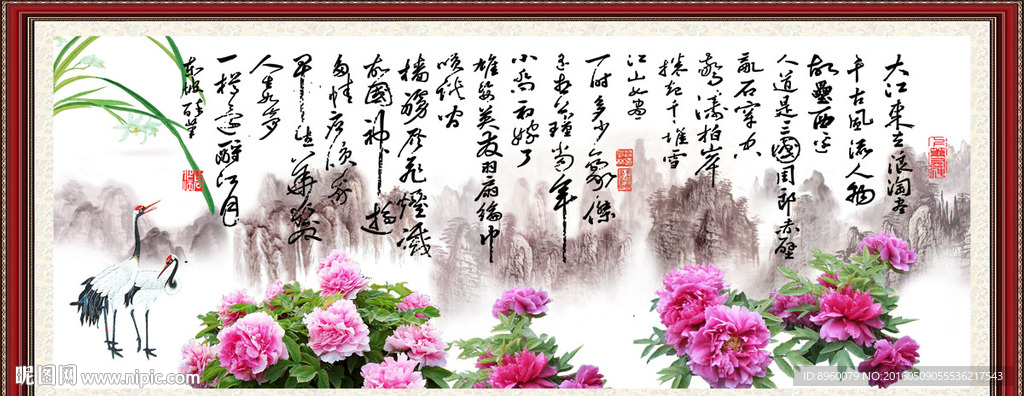 大江東去浪淘尽
千古風流人物
故壘西边
人道是三國周郎赤壁
乱石穿空
驚涛拍岸
捲起千堆雪
江山如畫
一时多少豪傑
遥想公瑾當年
小乔初嫁了
雄姿英发羽扇綸巾
谈笑间
檣艣灰飞煙滅
故國神游
多情应笑我
早生華髮
人生如梦
一樽還酹江月
昵图网 www.nipic.com
ID:8960079 NO:20160509055536217543